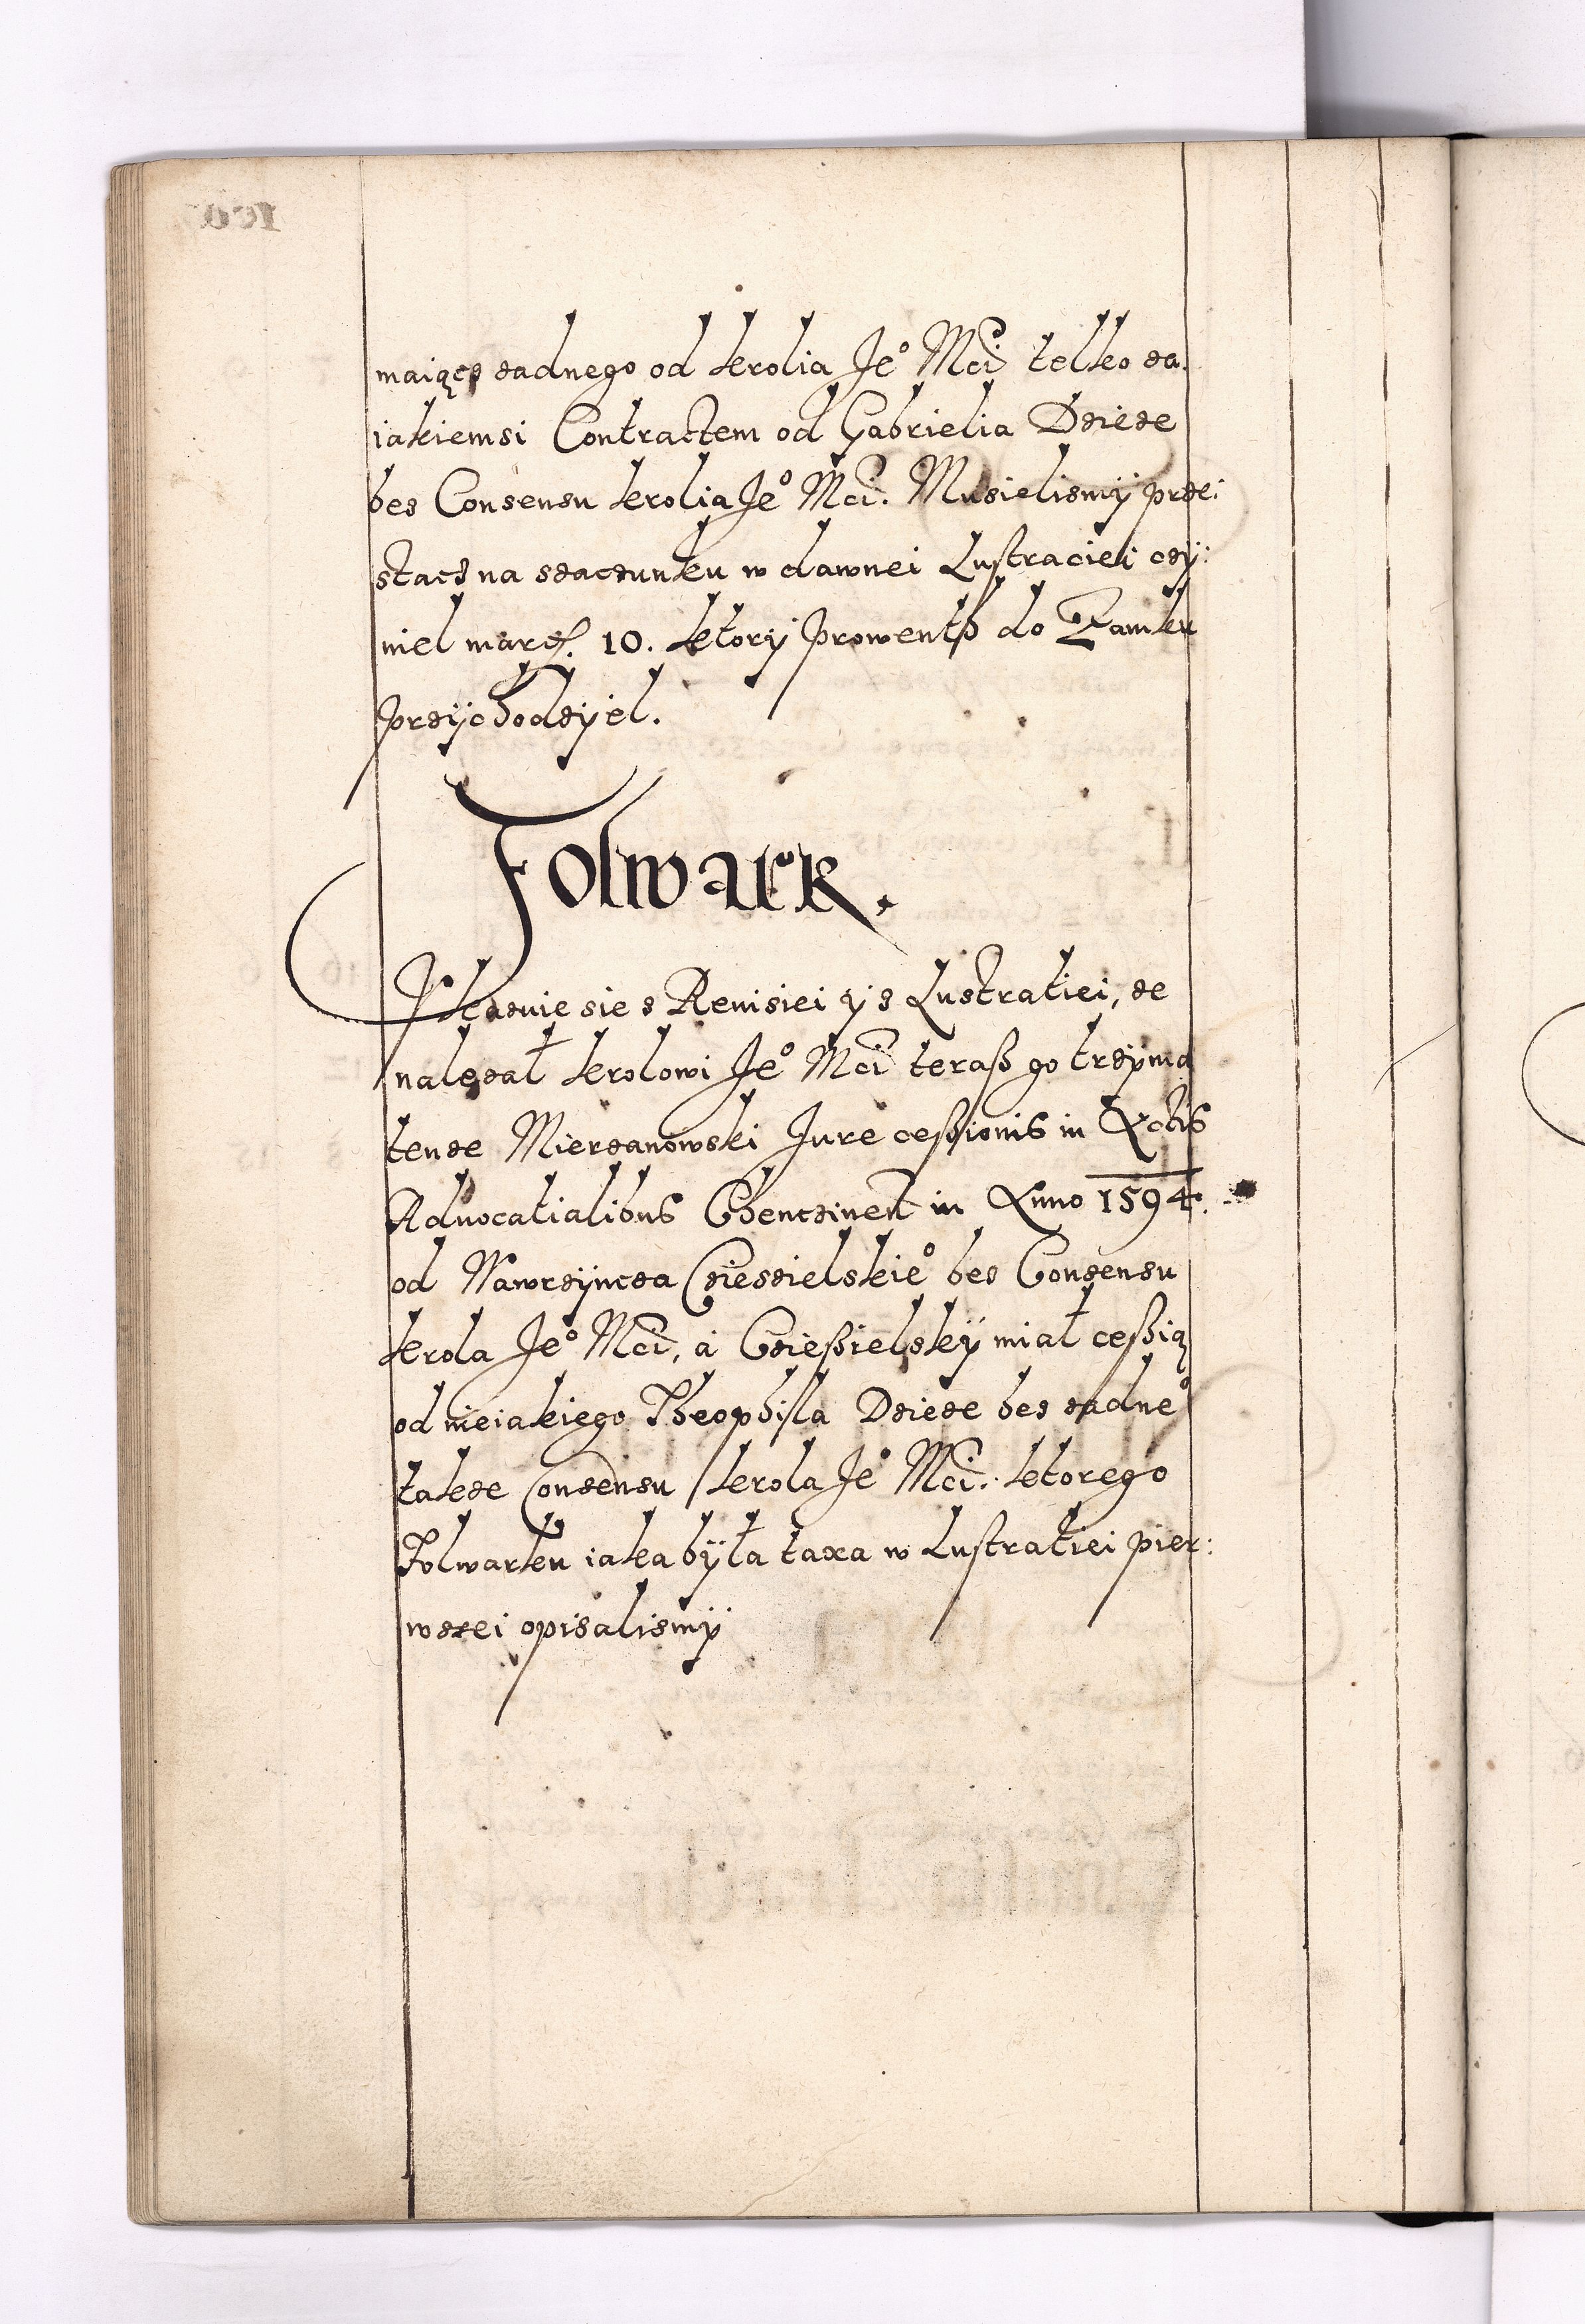 maiącz zadnego od krolia Je° Mci telko za
iakiemsi Contractem od Gabrielia Dzieze
bez Consensu krolia Je° Mci. Musielismÿ prze:
stacz na szaczunku w dawnei Lustraciei czÿ:
niel marc. 10. ktorÿ prowentß do Zamku
przÿchodzÿel.
Folwark.
Okazuie sie z Reuisiei ÿ z Lustratiei, ze
należał krolowi Je° Mci teraß go trzÿma
tenze Mierzanowski Jure ceßionis in Actis
Aduocatialibus Chencinen in Anno 1594.
od Wawrzÿncza Czieszielskie° bez Consensu
krola Je° Mci, a Czießielskÿ miał ceßią
od nieiakiego Theophila Dzieze bez zadne°
takze Consensu krola Je° Mci. ktorego
Folwarku iaka bÿła taxa w Lustratiei pier:
wszei opisalismÿ